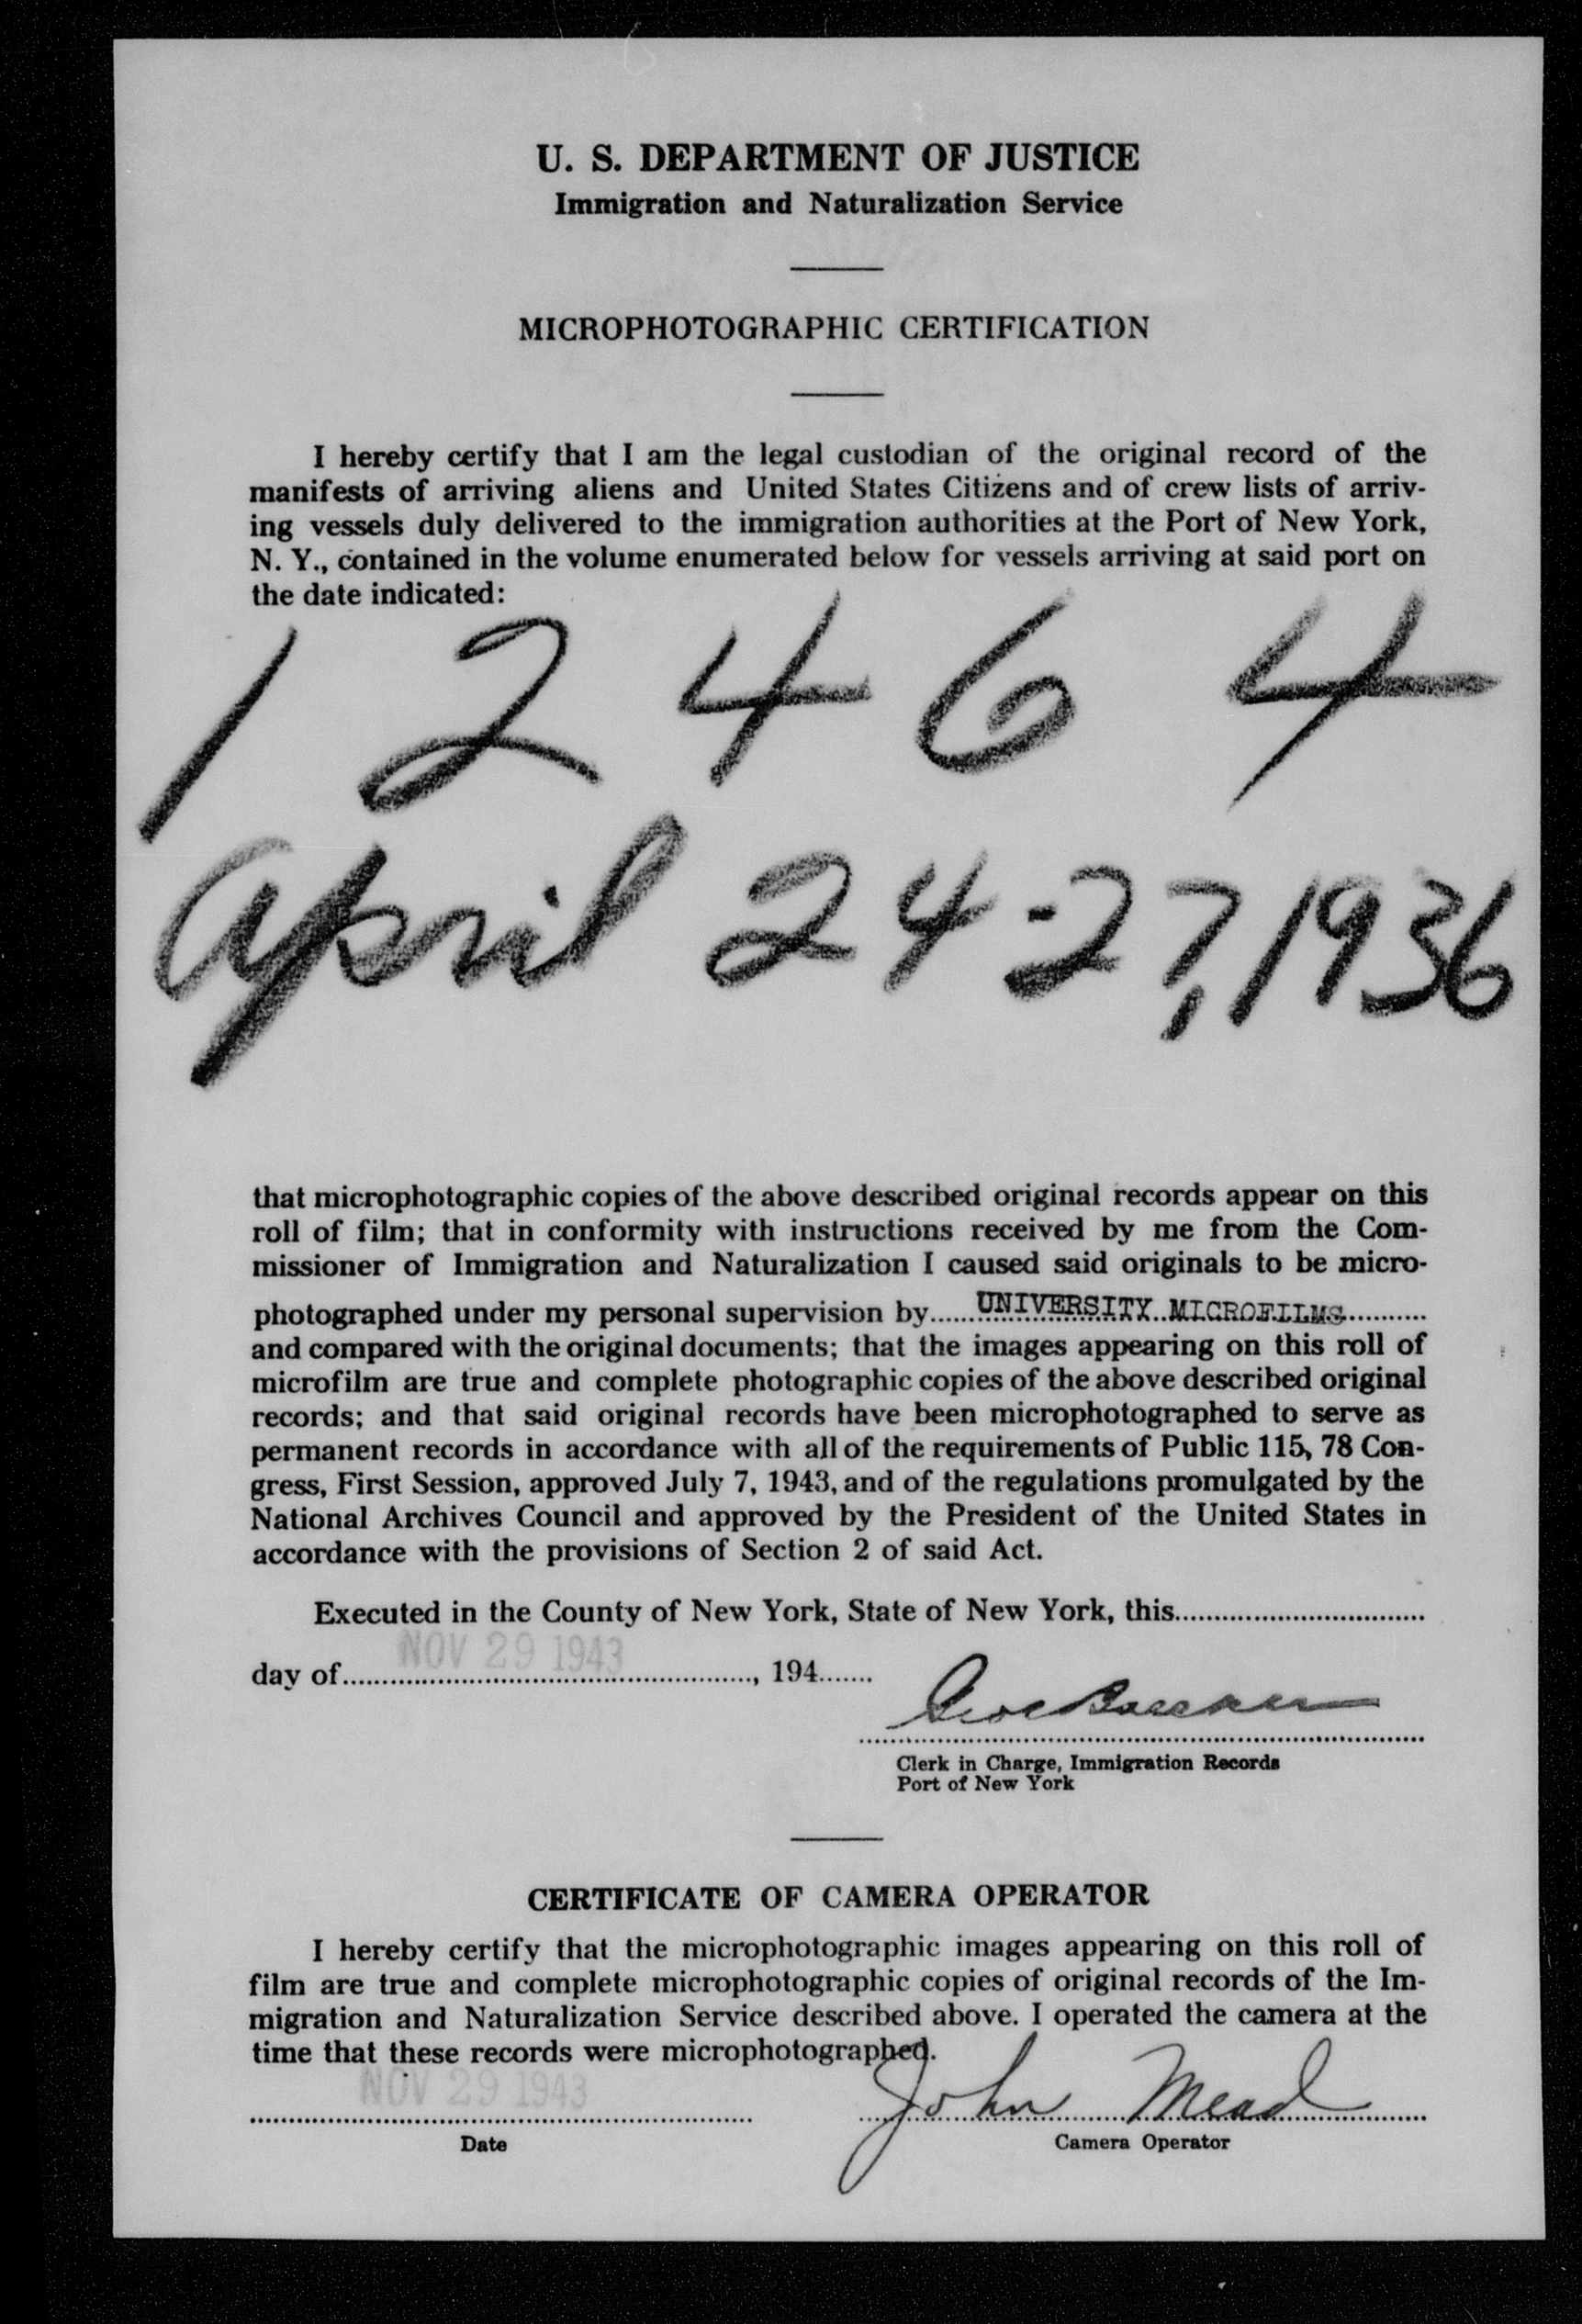 U. S. DEPARTMENT OF JUSTICE
Immigration and Naturalization Service
MICROPHOTOGRAPHIC CERTIFICATION
I hereby certify that I am the legal custodian of the original record of the
manifests of arriving aliens and United States Citizens and of crew lists of arriv-
ing vessels duly delivered to the immigration authorities at the Port of New York,
N. Y., contained in the volume enumerated below for vessels arriving at said port on
the date indicated:
1 2 4 6 4
April 24-27, 1936
that microphotographic copies of the above described original records appear on this
roll of film; that in conformity with instructions received by me from the Com-
missioner of Immigration and Naturalization I caused said originals to be micro-
photographed under my personal supervision by......UNIVERSITY MICROFILMS............
and compared with the original documents; that the images appearing on this roll of
microfilm are true and complete photographic copies of the above described original
records; and that said original records have been microphotographed to serve as
permanent records in accordance with all of the requirements of Public 115, 78 Con-
gress, First Session, approved July 7, 1943, and of the regulations promulgated by the
National Archives Council and approved by the President of the United States in
accordance with the provisions of Section 2 of said Act.
Executed in the County of New York, State of New York, this................................
NOV 29 1943
day of...................................................., 194.......
Clerk in Charge, Immigration Records
Port of New York
CERTIFICATE OF CAMERA OPERATOR
I hereby certify that the microphotographic images appearing on this roll of
film are true and complete microphotographic copies of original records of the Im-
migration and Naturalization Service described above. I operated the camera at the
time that these records were microphotographed.
NOV 29 1943 John Mead
Date Camera Operator